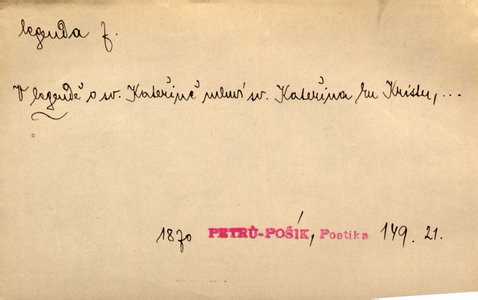 legenda f.
V legendě o sv. Kateřině mluví sv. Kateřina ku Kristu, ...
1870 PETRŮ-POŠÍK, Poetika 149. 21.